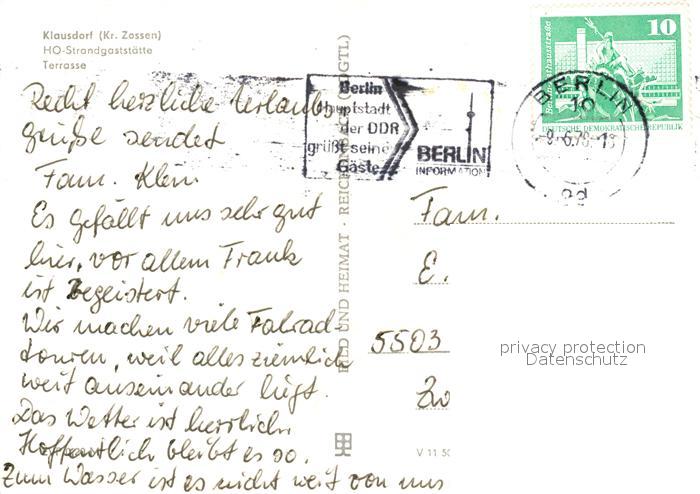 Klausdorf (Kr. Zossen)
HO-Strandgaststätte
Terrasse
Recht herzliche Urlaubs-
grüße sendet
Fam. Klein
Es gefällt uns sehr gut
hier, vor allem Frank
ist begeistert.
Wir machen viele Fahrrad-
touren, weil alles ziemlich
weit auseinander liegt.
Das Wetter ist herrlich.
Hoffentlich bleibt es so.
Zum Wasser ist es nicht weit von uns
BILD UND HEIMAT · REICHENBACH (VOGTL)
V 11 50
Berlin
Hauptstadt
der DDR
grüßt seine
Gäste
BERLIN
INFORMATION
10
DEUTSCHE DEMOKRATISCHE REPUBLIK
BERLIN
10
Fam.
E.
5503
Zw
privacy protection
Datenschutz